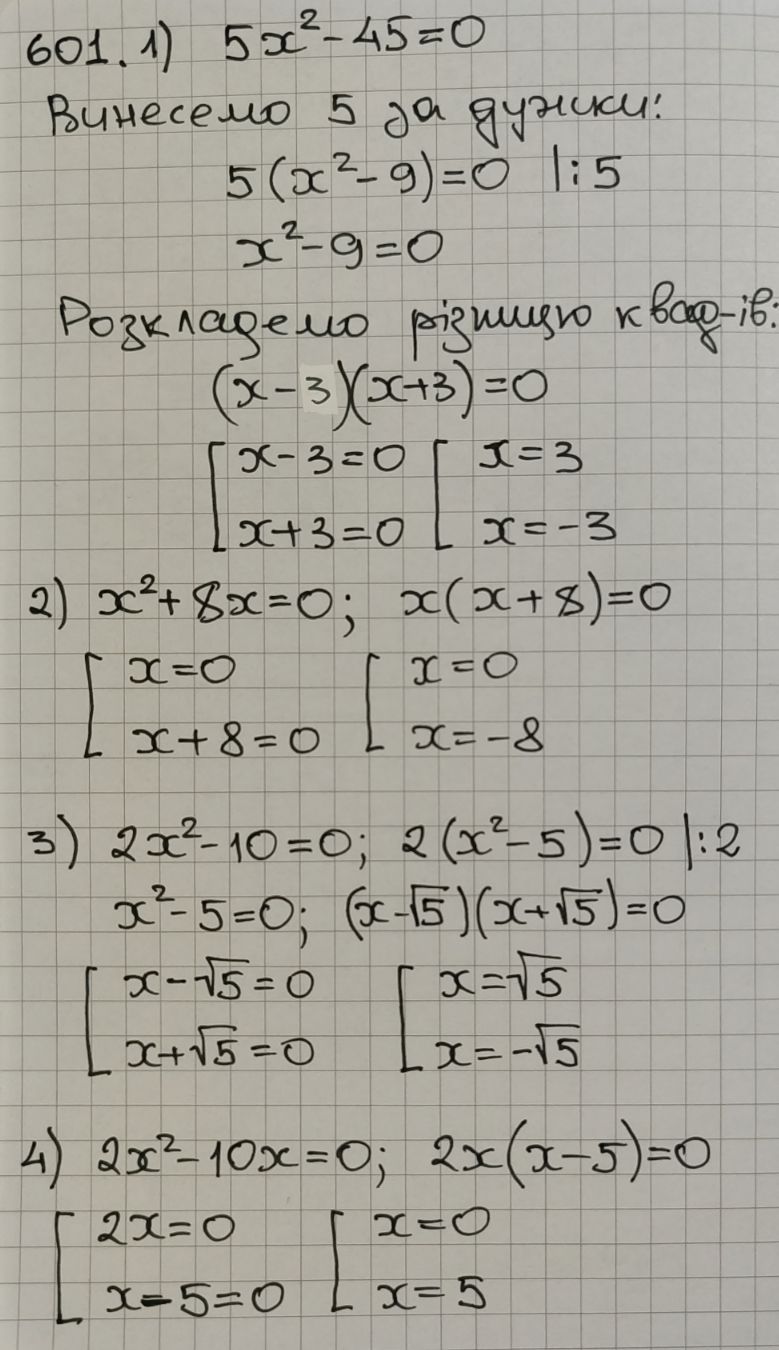 601. 1) 5x²-45=0
Винесемо 5 за дужки:
5(x²-9)=0 |:5
x²-9=0
Розкладемо різницю квад-ів:
(x-3)(x+3)=0
[ x-3=0 [ x=3
x+3=0 x=-3
2) x²+8x=0; x(x+8)=0
[ x=0 [ x=0
x+8=0 x=-8
3) 2x²-10=0; 2(x²-5)=0 |:2
x²-5=0; (x-√5)(x+√5)=0
[ x-√5=0 [ x=√5
x+√5=0 x=-√5
4) 2x²-10x=0; 2x(x-5)=0
[ 2x=0 [ x=0
x-5=0 x=5